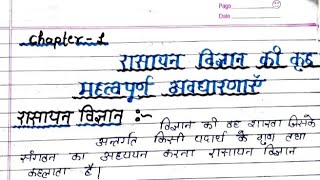 Page
Date
Chapter-1
रासायन विज्ञान की कुछ
महत्वपूर्ण अवधारणाएँ
रासायन विज्ञान :-
विज्ञान की वह शाखा जिसके
अन्तर्गत किसी पदार्थ के गुण तथा
संगठन का अध्ययन करना रासायन विज्ञान
कहलाता है।